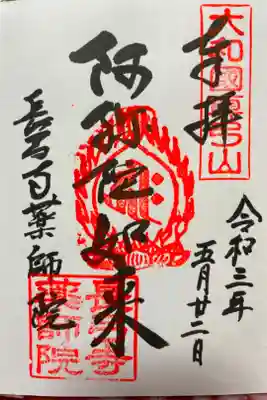 大和國眞弓山
奉拝
令和三年
五月廿二日
阿弥陀如来
長弓寺薬師院
長弓寺
薬師院